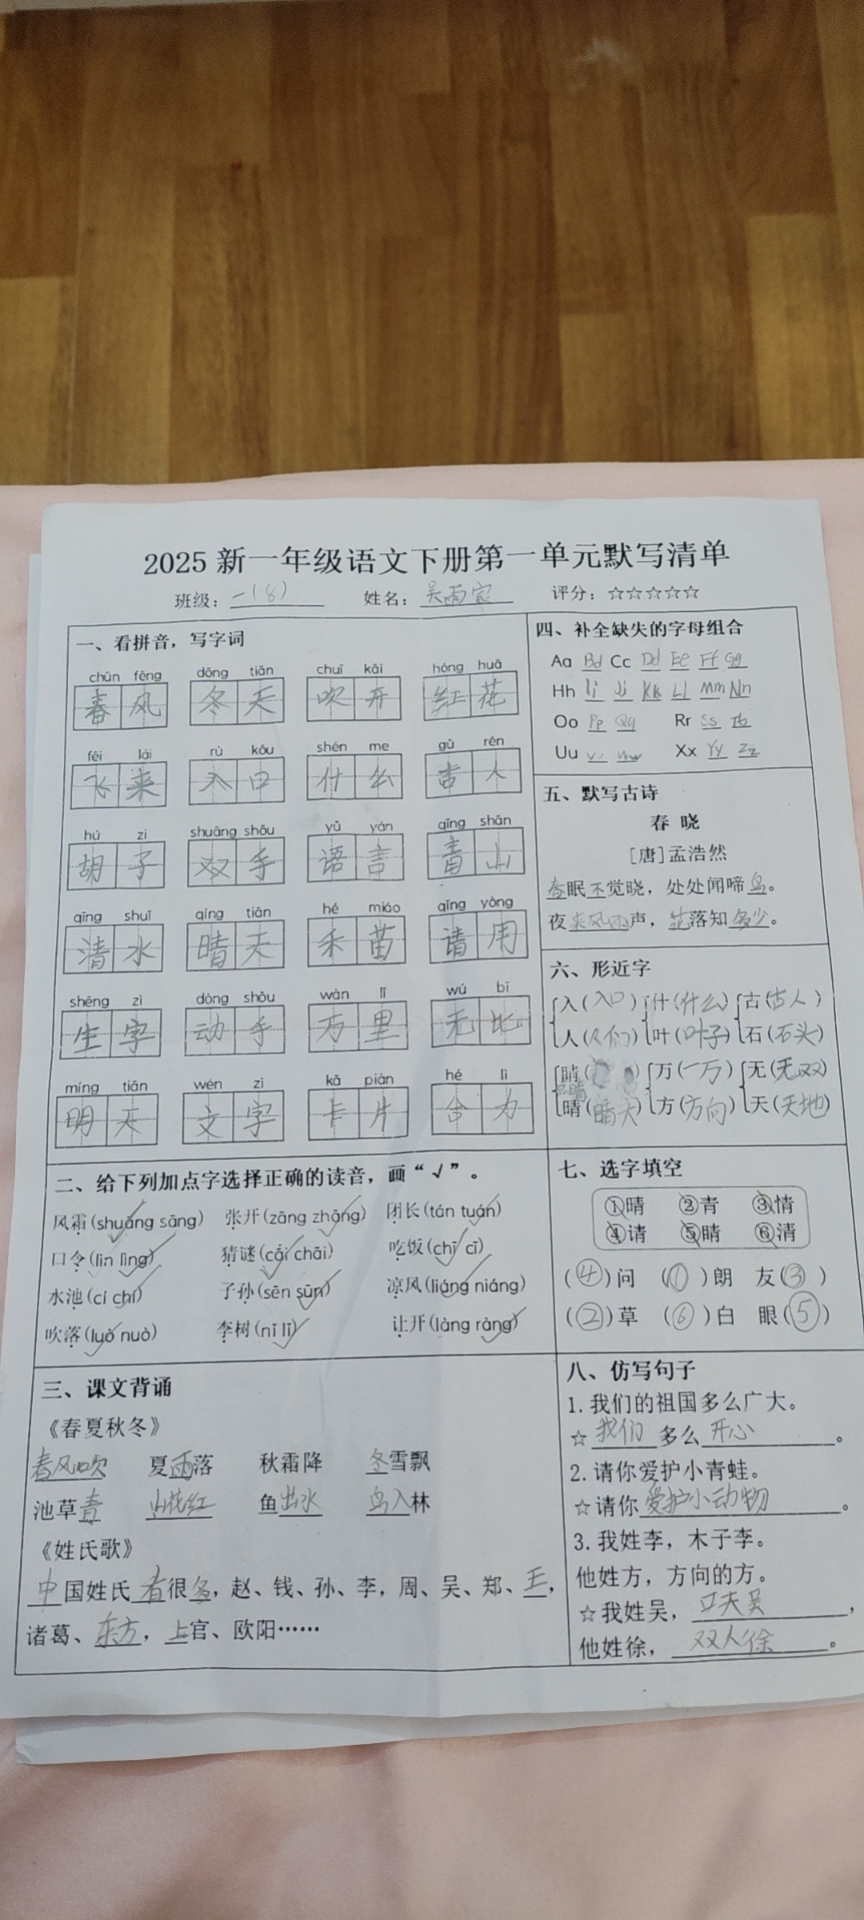 2025新一年级语文下册第一单元默写清单
班级：一(8) 姓名：吴雨宸 评分：☆☆☆☆☆
一、看拼音，写字词
chūn fēng dōng tiān chuī kāi hóng huā
春风 冬天 吹开 红花
fēi lái rù kǒu shén me gǔ rén
飞来 入口 什么 古人
hú zi shuāng shǒu yǔ yán qīng shān
胡子 双手 语言 青山
qīng shuǐ qíng tiān hé miáo qǐng yòng
清水 晴天 禾苗 请用
shēng zì dòng shǒu wàn lǐ wú bǐ
生字 动手 万里 无比
míng tiān wén zì kǎ piàn hé lì
明天 文字 卡片 合力
二、给下列加点字选择正确的读音，画“√”。
风霜(shuāng√ sāng) 张开(zāng zhāng√) 团长(tán tuán√)
口令(lìn lìng√) 猜谜(cāi√ chāi) 吃饭(chī√ cī)
水池(cí chí√) 子孙(sēn sūn√) 凉风(liáng√ niáng)
吹落(luò√ nuò) 李树(nǐ lǐ√) 让开(làng ràng√)
三、课文背诵
《春夏秋冬》
春风吹 夏雨落 秋霜降 冬雪飘
池草青 山花红 鱼出水 鸟入林
《姓氏歌》
中国姓氏有很多，赵、钱、孙、李，周、吴、郑、王，
诸葛、东方，上官、欧阳……
四、补全缺失的字母组合
Aa Bd Cc Dd Ee Ff Gg
Hh Ii Jj Kk Ll Mm Nn
Oo Pp Qq Rr Ss Tt
Uu Vv Ww Xx Yy Zz
五、默写古诗
春 晓
[唐]孟浩然
春眠不觉晓，处处闻啼鸟。
夜来风雨声，花落知多少。
六、形近字
入(入口) 什(什么) 古(古人)
人(人们) 叶(叶子) 石(石头)
睛( ) 万(一万) 无(无双)
晴(晴天) 方(方向) 天(天地)
七、选字填空
①晴 ②青 ③情
④请 ⑤睛 ⑥清
(④)问 (①)朗 友(③)
(②)草 (⑥)白 眼(⑤)
八、仿写句子
1. 我们的祖国多么广大。
☆我们多么开心。
2. 请你爱护小青蛙。
☆请你爱护小动物。
3. 我姓李，木子李。
他姓方，方向的方。
☆我姓吴，口天吴，
他姓徐，双人徐。